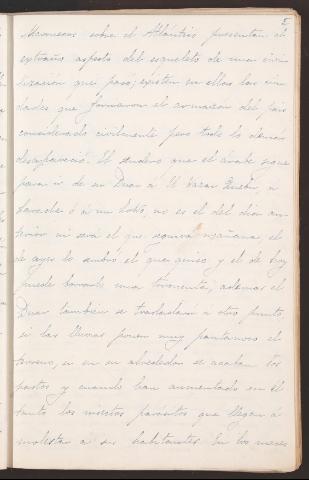 5
Marruecos sobre el Atlántico presentan el
extraño aspecto del esqueleto de una civi-
lización que pasó; existen en ellos las ciu-
dades que formaron el armazón del país
considerado civilmente pero todo lo demás
desapareció. El sendero que el árabe sigue
para ir de un Duar á
ó á un no es el del dia an-
terior ni será el que seguirá mañana, el
de ayer lo sembró el que quiso y el de hoy
puede borrarle una tormenta; ademas el
Duar tambien se traslada á otro punto,
si las lluvias ponen muy pantanoso el
terreno, si en su alrededor se acaban los
pastos y cuando han aumentado en él
tanto los insectos parásitos que llegan á
molestar á sus habitantes. En los meses